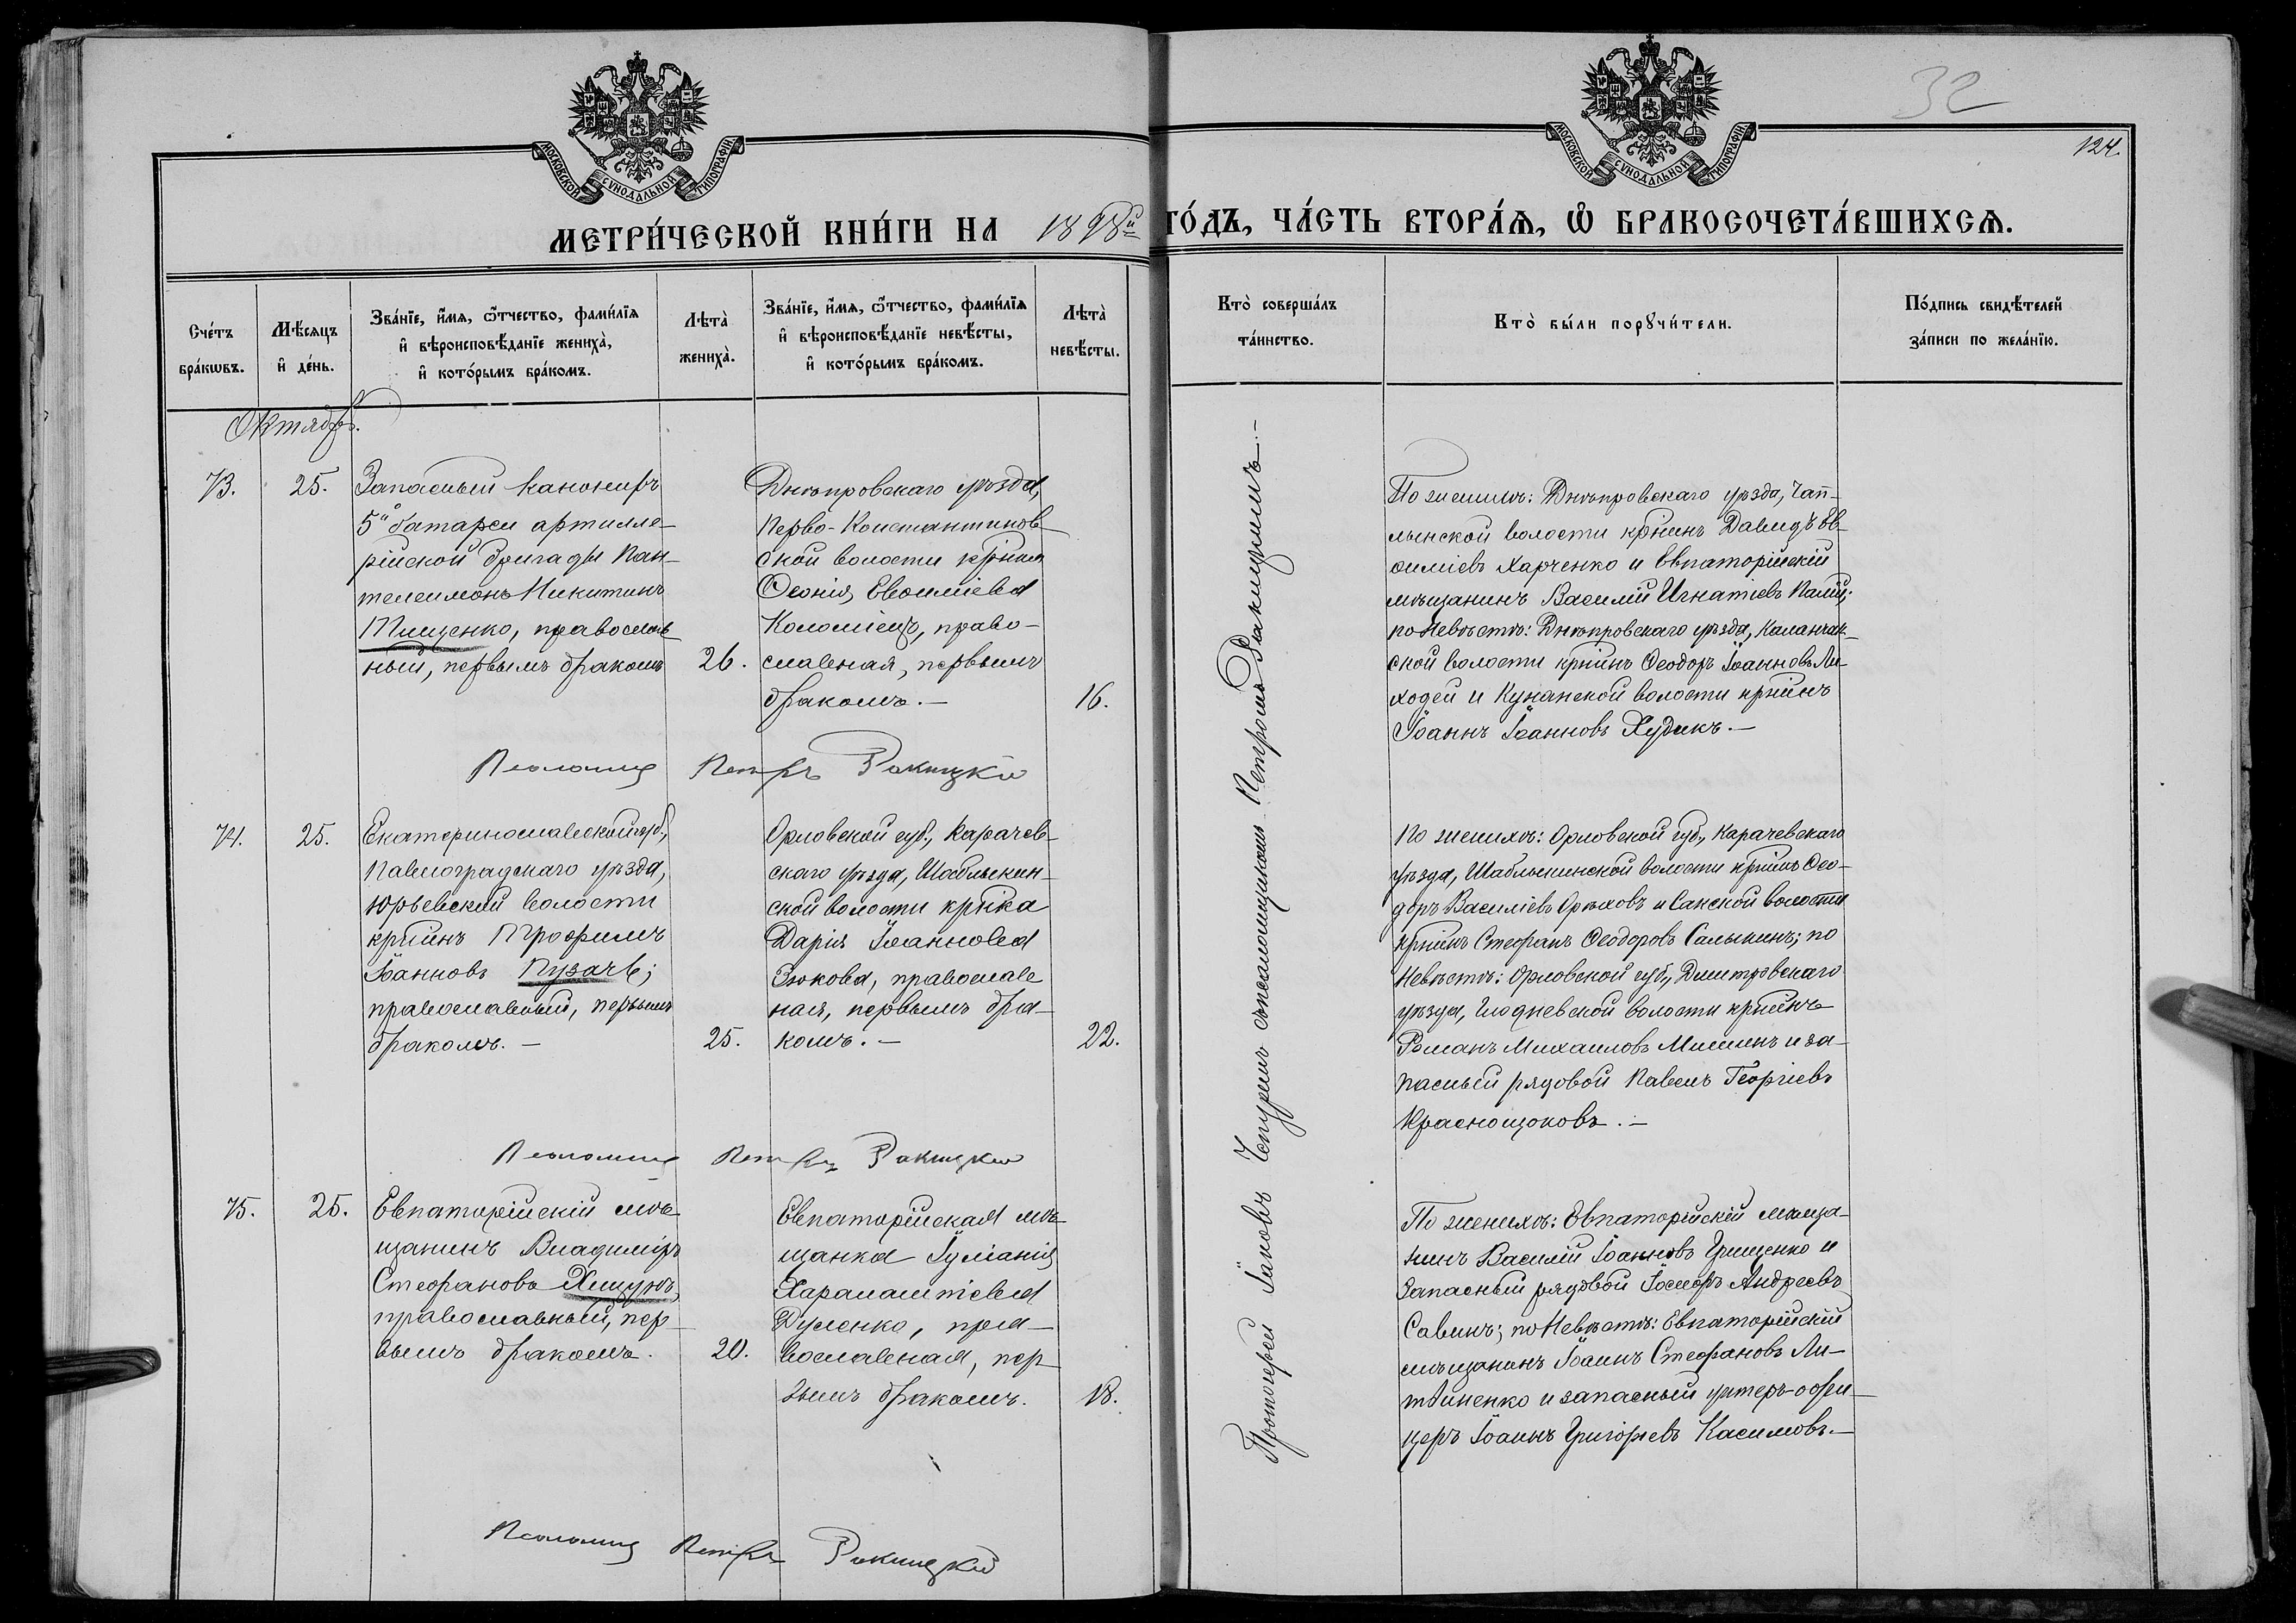 32
124.
МОСКОВСКОЙ СѴНОДАЛЬНОЙ ТИПОГРАФІИ
МОСКОВСКОЙ СѴНОДАЛЬНОЙ ТИПОГРАФІИ
МЕТРИ́ЧЕСКОЙ КНИ́ГИ НА 1898й ГО́ДЪ, ЧА́СТЬ ВТОРА́Ѧ, Ѡ БРАКОСОЧЕТА́ВШИХСѦ.
Сче́тъ
бра́кѡвъ.
Мѣ́сяцъ
и҆ де́нь.
Зва́нїе, и҆́мѧ, ѻ҆́тчество, фами́лїѧ
и҆ вѣроисповѣ́данїе жениха̀,
и҆ кото́рымъ бра́комъ.
Лѣта̀
жениха̀.
Зва́нїе, и҆́мѧ, ѻ҆́тчество, фами́лїѧ
и҆ вѣроисповѣ́данїе невѣ́сты,
и҆ кото́рымъ бра́комъ.
Лѣта̀
невѣ́сты.
Кто̀ соверша́лъ
та́инство.
Кто̀ бы́ли порꙋчи́тели.
По́дпись свидѣ́телей
за́писи по жела́нїю.
Октябрь.
73.
25.
Запасный канониръ
5й батареи артилле-
рійской бригады Пан-
телеимонъ Никитинъ
Тищенко, православ
ный, первымъ бракомъ
26.
Днѣпровскаго уѣзда,
Перво-Константинов-
ской волости кр-нка
Ѳеонія Евѳиміева
Коломіецъ, право-
славная, первымъ
бракомъ.-
16.
По женихѣ: Днѣпровскаго уѣзда, Чап-
лынской волости кр-нинъ Давидъ Ев-
ѳиміевъ Харченко и Евпаторійскій
мѣщанинъ Василій Игнатіевъ Палій;
по невѣстѣ: Днѣпровскаго уѣзда, Каланчак-
ской волости кр-нинъ Ѳеодоръ Іоанновъ Ли-
ходей и волости кр-нинъ
Іоаннъ Іоанновъ Худикъ.-
Псаломщ Петръ Ракицкій
74.
25.
Екатеринославской губ.,
Павлоградскаго уѣзда,
Юрьевской волости
кр-нинъ Трофимъ
Іоанновъ Пузачъ;
православный, первымъ
бракомъ.-
25.
Орловской губ., Карачев-
скаго уѣзда, Шаблыкин-
ской волости кр-нка
Дарія Іоаннова
Зюкова, православ
ная, первымъ бра-
комъ.-
22.
По женихѣ: Орловской губ., Карачевскаго
уѣзда, Шаблыкинской волости кр-нинъ Ѳео-
доръ Василіевъ Орѣховъ и волости
кр-нинъ Стефанъ Ѳеодоровъ Салыкинъ; по
невѣстѣ: Орловской губ., Дмитровскаго
уѣзда, Глодневской волости кр-нинъ
Романъ Михаиловъ Мишинъ и за-
пасный рядовой Павелъ Георгіевъ
Краснощоковъ.-
Псаломщ Петръ Ракицкій
75.
25.
Евпаторійскій мѣ-
щанинъ Владиміръ
Стефановъ Хищунъ,
православный, пер-
вымъ бракомъ.
20.
Евпаторійская мѣ-
щанка Іуліанія
Харалампіева
Дуленко, пра-
вославная, пер-
вымъ бракомъ.
18.
По женихѣ: Евпаторійскій мѣща-
нинъ Василій Іоанновъ Грищенко и
запасный рядовой Іосифъ Андреевъ
Савинъ; по невѣстѣ: Евпаторійскій
мѣщанинъ Іоаннъ Стефановъ Ли-
твиненко и запасный унтеръ-офи-
церъ Іоаннъ Григорьевъ Касимовъ.-
Псаломщ Петръ Ракицкій
Протоіерей Іаковъ Чепуринъ съ псаломщикомъ Петромъ Ракицкимъ.-